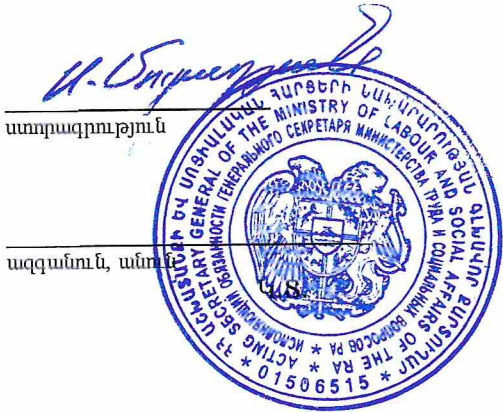 ստորագրություն
ազգանուն, անուն
Կ.Տ.
ՀՀ ԱՇԽԱՏԱՆՔԻ ԵՎ ՍՈՑԻԱԼԱԿԱՆ ՀԱՐՑԵՐԻ ՆԱԽԱՐԱՐՈՒԹՅԱՆ ԳԼԽԱՎՈՐ ՔԱՐՏՈՒՂԱՐ * 01506515 *
ACTING SECRETARY GENERAL OF THE MINISTRY OF LABOUR AND SOCIAL AFFAIRS OF THE RA *
ИСПОЛНЯЮЩИЙ ОБЯЗАННОСТИ ГЕНЕРАЛЬНОГО СЕКРЕТАРЯ МИНИСТЕРСТВА ТРУДА И СОЦИАЛЬНЫХ ВОПРОСОВ РА *